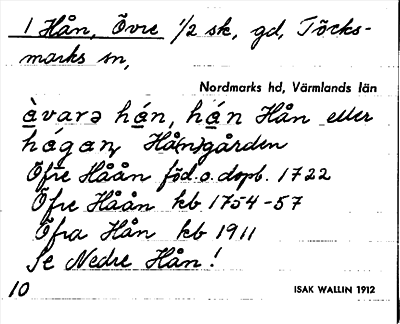 1 Hån, Övre 1/2 sk, gd, Töcks-
marks sn,
Nordmarks hd, Värmlands län
àvarə hán, hán Hån eller
hágaṇ Hå(n)gården
Öfre Håån föd. o. dopb. 1722
Öfre Håån kb 1754-57
Öfra Hån kb 1911
Se Nedre Hån!
10
ISAK WALLIN 1912